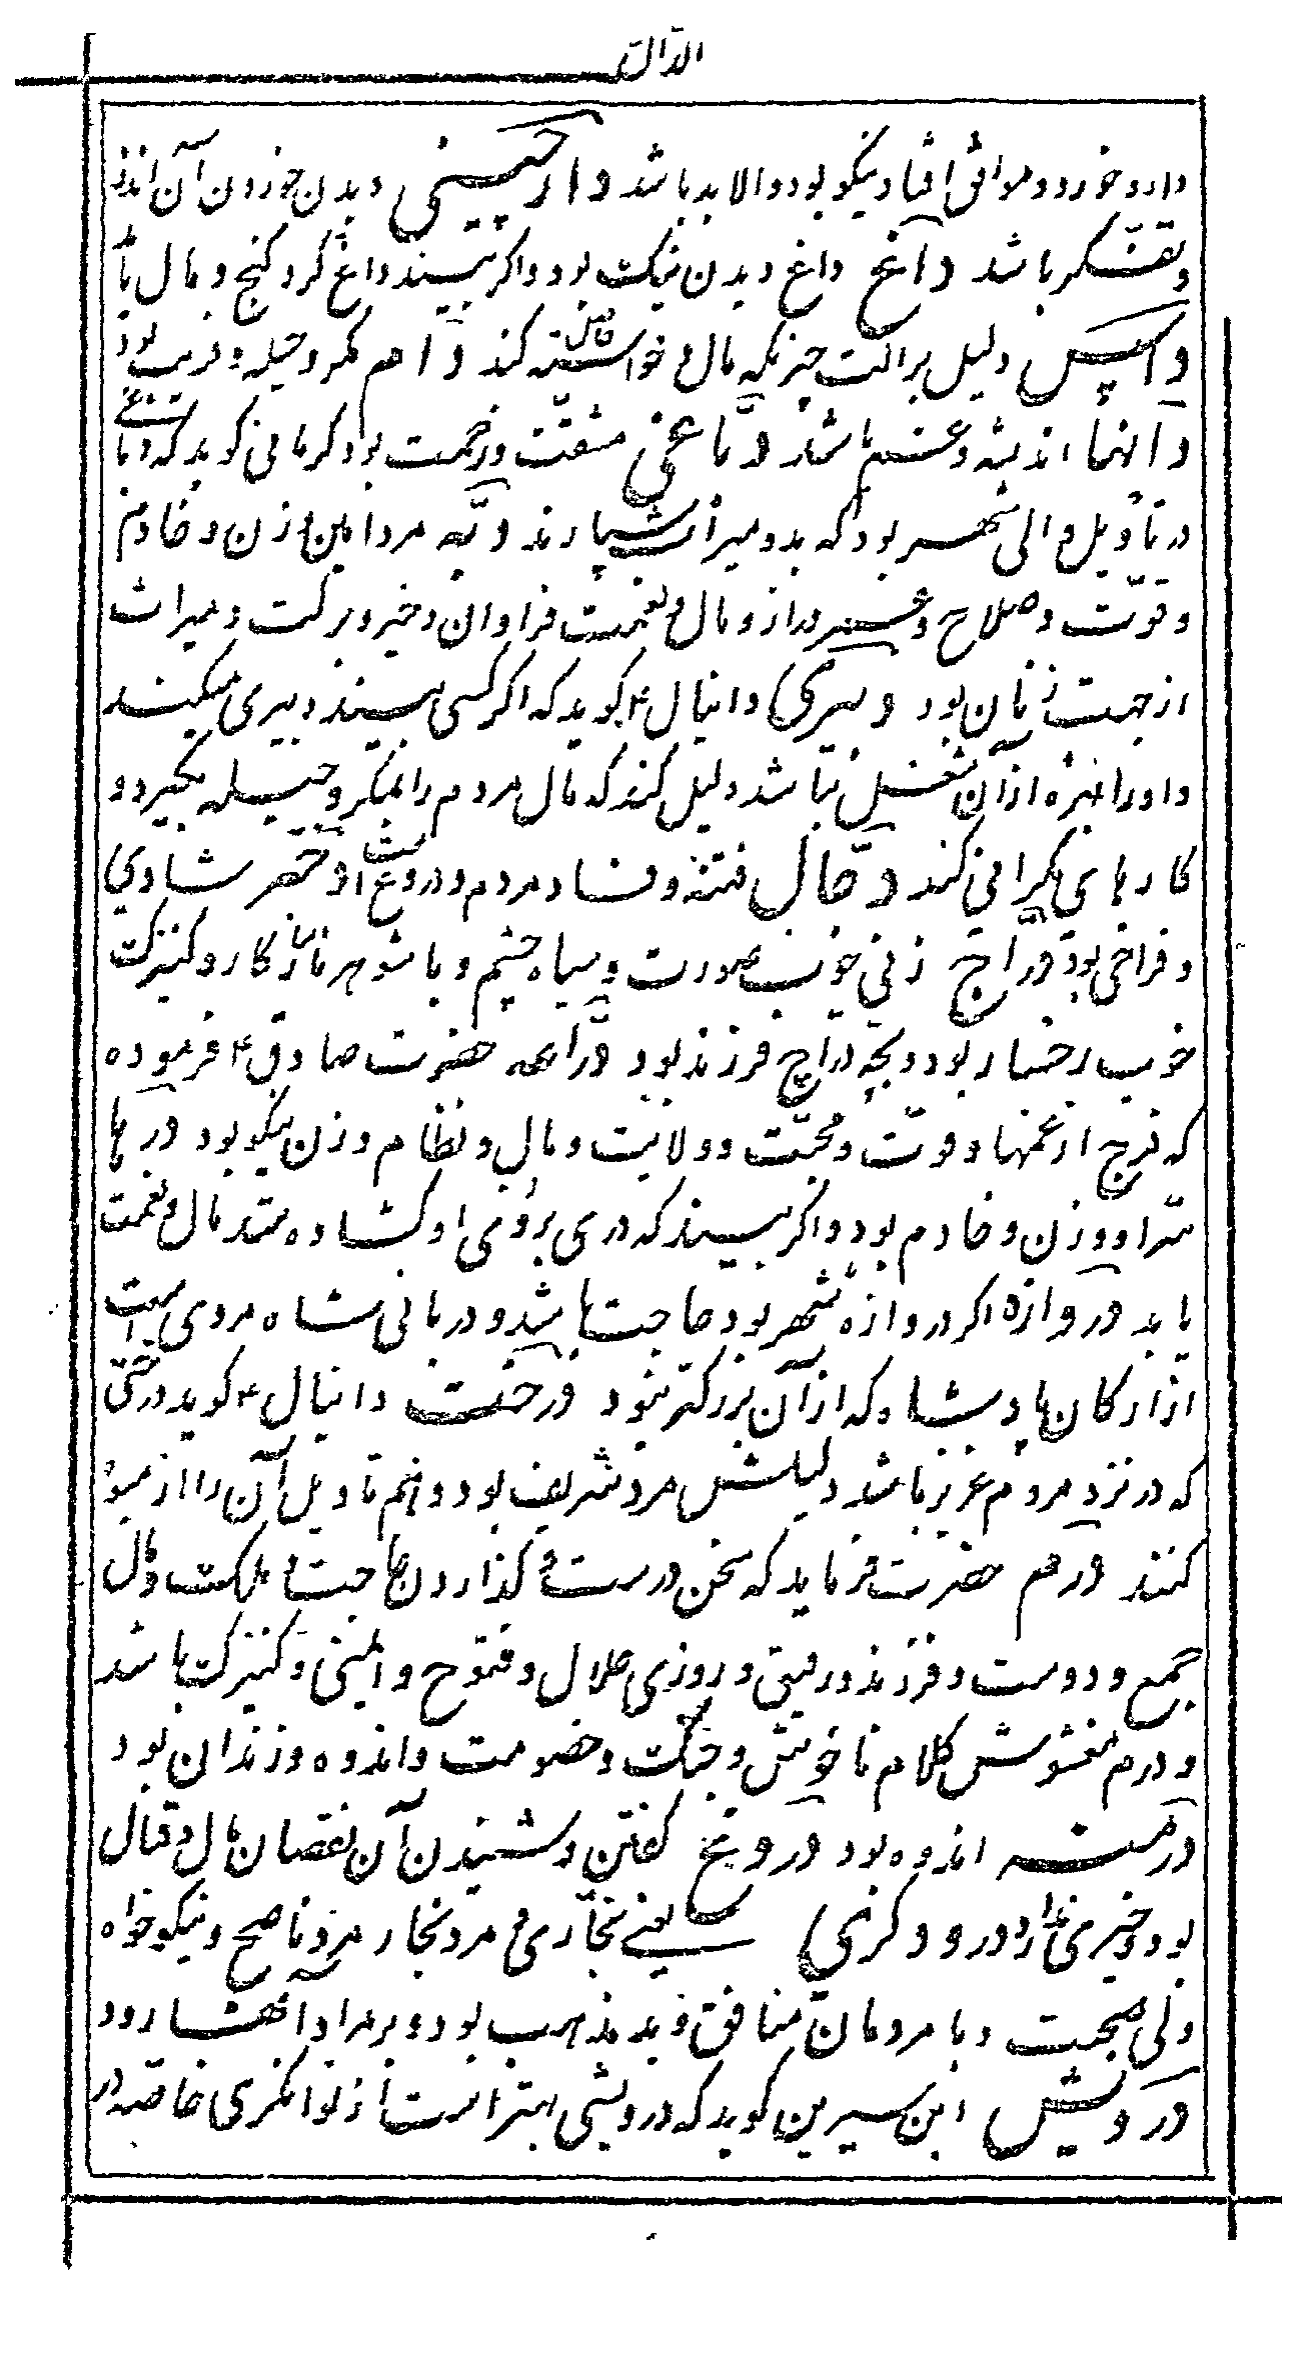 الدّال
دارو خورد و موافق افتاد نیکو بود و الا بد باشد دارچینی دیدن و خوردن آن اندو
و تفکر باشد داغ داغ دیدن نیک بود و اگر بیند داغ کرد گنج و مال یا
داپس دلیل بر آنست چیزیکه مال و خواسته حاصل کند دام مکر و حیله و فریب بود
دانها اندیشه و غم باشد دباغی مشقت و زحمت بود کرمانی گوید که دباغی
در تأویل والی شهر بود که بدو میراث سپارند دبه مرد امین و زن و خادم
و قوّت و صلاح و عمر دراز و مال و نعمت فراوان و خیر و برکت و میراث
از جهت زنان بود دبیری دانیال ۴ گوید که اگر کسی بیند دبیری میکند
و او را بهره از آن شغل نباشد دلیل کند که مال مردم را بمکر و حیله بگیرد و
کارهای کرامی کند دجال فتنه و فساد مردم و دروغ است دختر شادی
و فراخی بود دراج زنی خوب صورت و سیاه چشم و با شوهر ناسازکار و کنیزک
خوب رخسار بود و بچه درّاج فرزند بود دراعه حضرت صادق ۴ فرموده
که فرج از غمها و قوّت و محبّت و ولایت و مال و نظام و زن نیکو بود درها
سرا و زن و خادم بود و اگر بیند که دری بروی او گشاده شد مال و نعمت
یابد دروازه اگر دروازه شهر بود حاجت باشد و دربانی شاه مردی است
از ارکان پادشاه که از آن بزرگتر نبود درخت دانیال ۴ گوید درختی
که در نزد مردم عزیز باشد دلیلش مرد شریف بود و هم تأویل آن را از میوه
کنند درهم حضرت فرماید که سخن درست و گذاردن حاجت و ملکت و مال
جمع و دوست و فرزند و رفیق و روزی حلال و فتوح و ایمنی و کنیزک باشد
و درم مغشوش کلام ناخوش و جنگ و خصومت و اندوه و زندان بود
درمنه اندوه بود دروغ گفتن و شنیدن آن نقصان مال و قتال
بود و خیری ندارد درودگری یعنی نجّاری و مرد نجار مرد ناصح و نیکو خواه
ولی صحبت و با مردمان منافق و بد مذهب بود و بر مراد آنها رود
درویش ابن سیرین گوید که درویشی بهتر است از توانگری خاصّه در